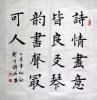 詩情畫意
皆良友琴
韻書聲最
可人